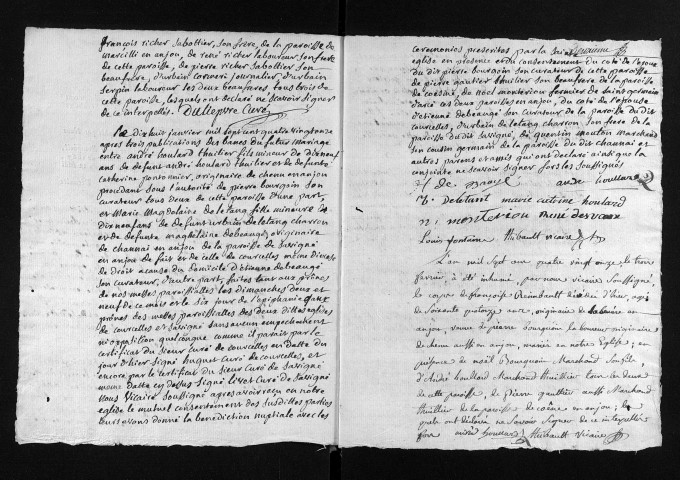 françois richer Sabottier, son frere, de la paroisse de
marcilli en anjou, de rené richer laboureur son frere
de cette paroisse, de pierre richer Sabottier son
beaufrere, d'urbain corneri journalier d'urbain
sergin laboureur les deux beaufreres tous trois de
cette paroisse, lesquels ont declaré ne scavoir signer
de ce interpellés. Dulleppvre Curé
Le dix huit janvier mil sept cent quatre vingt onze
apres trois publications des bans du futur mariage
entre andré houlard thuilier fils mineur de dix neuf
ans de defunt andré houlard thuilier et de defunte
catherine pontonnier, originaire de chenu en anjou
procédant sous l'autorité de pierre bourgoin son
curateur tous deux de cette paroisse d'une part,
et Marie Magdelaine deletang fille mineure de
dix neuf ans de defunt urbain deletang charron
et de defunte magdeleine debeaugé originaire
de channai en anjou de la paroisse de Savigné
en anjou de fait et de celle de courcelles meme diocese
de Droit a cause du domicile d'etienne debeaugé
son curateur, d'autre part, faites tant aux prônes
de nos messes paroissialles les dimanches deux et
neuf de ce mois et le six jour de l'epiphanie qu'aux
prônes des messes paroissialles des deux dittes eglises
de courcelles et Savigné sans aucun empechement
ni opposition quelconque comme il parait par le
certificat du sieur Curé de courcelles en datte du
jour d'hier signé huguet Curé de courcelles, et
encore par le certificat du sieur Curé de Savigné
meme datte cy dessus signé livet Curé de Savigné
nous Vicaire soussigné apres avoir reçu en notre
eglise le mutuel consentement des susdittes parties
leurs avons donné la benediction nuptiale avec les
ceremonies prescrites par la sainte
eglise en presence et du consentement du coté de l'epoux
du dit pierre bourgoin son curateur de cette paroisse
de pierre gautier thuilier son beaufrere de la paroisse
de coesme, de noel monterion fermier de saint germain
d'arcé ces deux paroisses en anjou, du coté de l'epouse
d'etienne debeaugé son curateur de la paroisse du dit
courcelles, d'urbain deletang charron, son frere de la
paroisse du dit savigné, de quentin mouton marchand
son cousin germain de la paroisse du dit channai et
autres parens et amis qui ont déclaré ainsi que la
conjointe ne scavoir signer fors les soussignés
andré houllard
marie catrine houlard
monterion rené desvaux
Louis fontaine Thibault vicaire
L'an mil Sept cent quatre vingt onze le trois
fevrier, a été inhumé, par nous vicaire Soussigné,
le corps de françoise Raimbault décédée d'hier, agée
de Soixante quatorze ans, originaire de
en anjou, veuve de pierre bourgoin laboureur originaire
de chenu aussi en anjou, mariée en notre Eglise; en
presence de noël Bourgoin Marchand son fils
d'André houllard Marchand thuillier tous les deux
de cette paroisse, de pierre gauthier aussi Marchand
thuillier de la paroisse de coëme en anjou; les
quels ont déclaré ne Savoir Signer de ce interpellés
fors andré houllard Thibault Vicaire